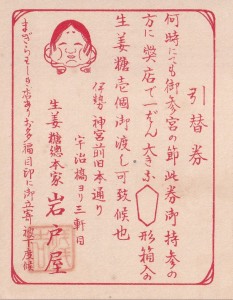 引替券
何時にても御参宮の節此券御持参の
方に弊店で一ばん大きな形箱入の
生姜糖壱個御渡し可致候也
伊勢神宮前旧本通り
宇治橋ヨリ三軒目
生姜糖總本家 岩戸屋
まぎらもしき店ありお多福目印に御立寄被下度候